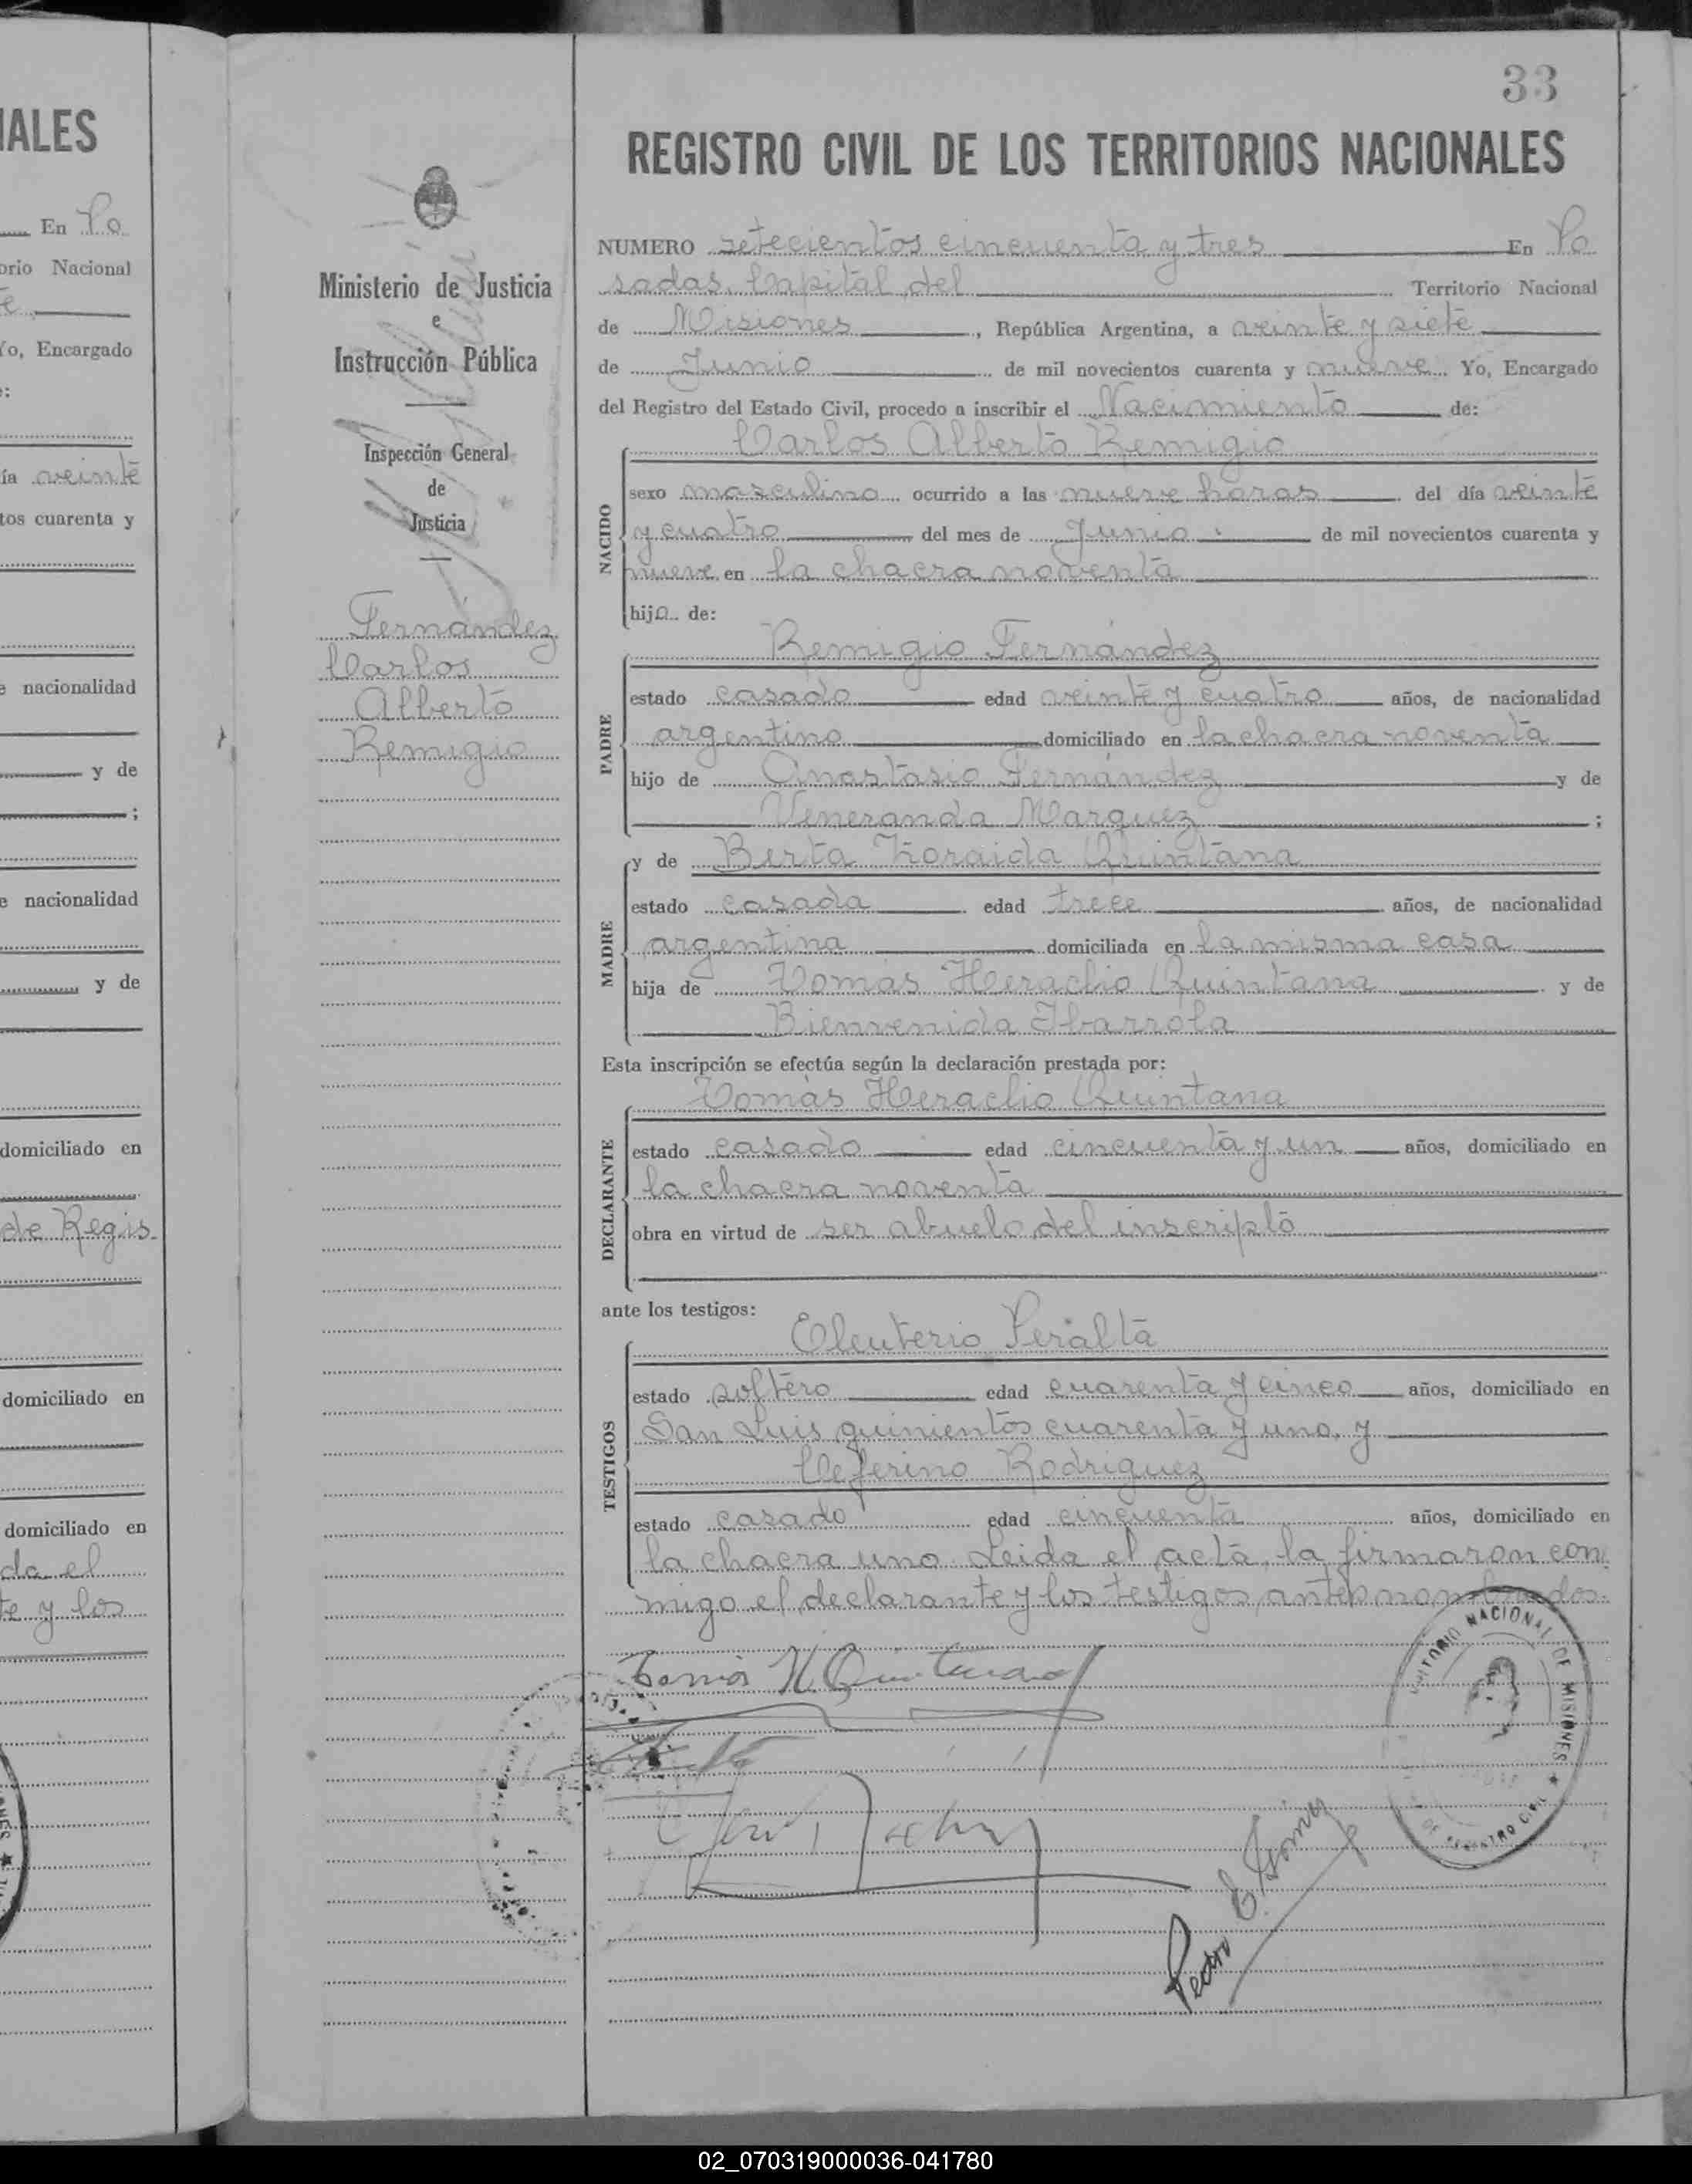 33
REGISTRO CIVIL DE LOS TERRITORIOS NACIONALES
NUMERO setecientos cincuenta y tres En Po
sadas, Capital del Territorio Nacional
de Misiones, República Argentina, a veinte y siete
de Junio de mil novecientos cuarenta y nueve Yo, Encargado
del Registro del Estado Civil, procedo a inscribir el Nacimiento de:
NACIDO
Carlos Alberto Remigio
sexo masculino ocurrido a las nueve horas del día veinte
y cuatro del mes de Junio de mil novecientos cuarenta y
nueve en la chacra noventa
hijo de:
PADRE
Remigio Fernández
estado casado edad veinte y cuatro años, de nacionalidad
argentino domiciliado en la chacra noventa
hijo de Anastasio Fernández y de
Veneranda Marquez ;
MADRE
y de Berta Zoraida Quintana
estado casada edad trece años, de nacionalidad
argentina domiciliada en la misma casa
hija de Tomás Heraclio Quintana y de
Bienvenida Ibarrola
Esta inscripción se efectúa según la declaración prestada por:
DECLARANTE
Tomás Heraclio Quintana
estado casado edad cincuenta y un años, domiciliado en
la chacra noventa
obra en virtud de ser abuelo del inscripto
ante los testigos:
TESTIGOS
Eleuterio Peralta
estado soltero edad cuarenta y cinco años, domiciliado en
San Luis quinientos cuarenta y uno, y
Ceferino Rodriguez
estado casado edad cincuenta años, domiciliado en
la chacra uno. Leida el acta, la firmaron con
migo el declarante y los testigos antes nombrados.
Tomás H. Quintana
Pedro E. Gómez
NACIONAL DE MISIONES
Ministerio de Justicia
e
Instrucción Pública
Inspección General
de
Justicia
Fernández
Carlos
Alberto
Remigio
IALES
En Po
orio Nacional
Yo, Encargado
ía veinte
tos cuarenta y
e nacionalidad
y de
;
e nacionalidad
y de
domiciliado en
de Regis
domiciliado en
domiciliado en
da el
te y los
02_070319000036-041780